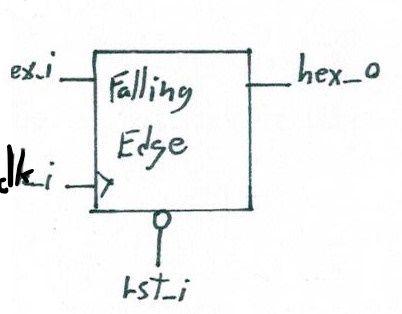 ex_i
Falling
Edge
hex_o
clk_i
rst_i